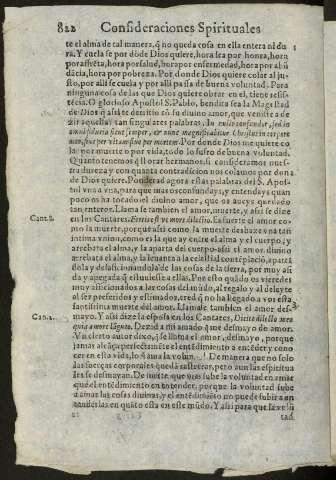 822 Consideraciones Spirituales
te el alma de tal manera, q̃ no queda cosa en ella entera ni du
ra. Y cuela se por dõde Dios quiere, hora sea por honra, hora
por afrẽta, hora por salud, hora por enfermedad, hora por abũ
dãcia, hora por pobreza. Por donde Dios quiere colar al ju-
sto, por alli se cuela y por alli passa de buena voluntad. Para
ninguna cosa de las que Dios quiere obrar en el, tiene resis-
tẽcia. O glorioso Apostol S. Pablo, bendita sea la Magestad
de Dios q̃ assi te derritio cõ su divino amor, que veniste a de
zir aquellas tan singulares palabras. In nullo confundar, sed in
omni fiducia sicut semper, & nunc magnificabitur Christus in corpore
meo, sive per vitam sive per mortem. Por donde Dios me quiere co
lar, por muerte o por vida, todo lo sufro de buena voluntad.
Quanto tenemos q̃ llorar hermanos, si consideramos nues-
tra dureza y con quanta contradicion nos colamos por don
de Dios quiere. Ponderad agora estas palabras del S. Apos-
tol una a una, para que mas os confundays, y entendays quan
poco os ha tocado el divino amor, que os aveys quedado
tan enteros. Llamase tambien el amor, muerte, y assi se dize
Cant. 8. en los Cantares. Fortis est ut mors dilectio. Es fuerte el amor co-
mo la muerte, porque assi como la muerte deshaze una tan
intima union, como es la que ay entre el alma y el cuerpo, y
arrebata el alma, y la aparta del cuerpo: assi el amor divino
arrebata el alma, y la levanta a la celestial contẽplaciõ, apartã
dola y desaficionandola de las cosas de la tierra, por muy assi
da y apegada q̃ estuviesse a ellas. Por esto quãdo os vieredes
muy aficionados a las cosas del mũdo, al regalo y al deleyte
al ser preferidos y estimados, creed q̃ no ha llegado a vos esta
sanctissima muerte del amor. Llamase tambien el amor des-
Cant. 2. mayo. Y assi dize la esposa en los Cantares, Dicite dilecto meo
quia amore langueo. Dezid a mi amado q̃ me desmayo de amor.
Un cierto autor dize, q̃ se llama el amor, desmayo, porque
jamas alcãça perfectamẽte el entẽdimiento a encẽder y cono
cer en esta vida, lo q̃ ama la volun De manera que no solo
las fuerças corporales quedã rastreras, pero aun las espiritua
les se desmayan. De suerte, que mas sube la voluntad en amar
que el entẽdimiento en entender, porque la voluntad sube
a amar las cosas divinas, y el entẽdimiẽto no puede subir a en
tenderlas en quãto esta en este mũdo. Y assi para q̃ la volũ
tad